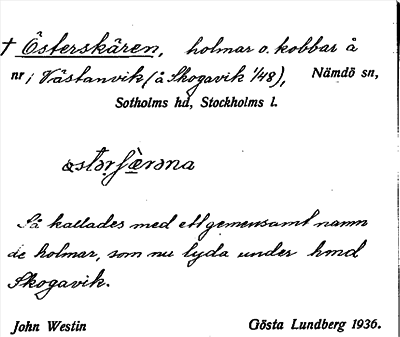 † Österskären, holmar o. kobbar å
nr 1 Västanvik (å Skogavik 1/48), Nämdö sn,
Sotholms hd, Stockholms l.
Så kallades med ett gemensamt namn
de holmar, som nu lyda under hmd
Skogavik.
John Westin Gösta Lundberg 1936.